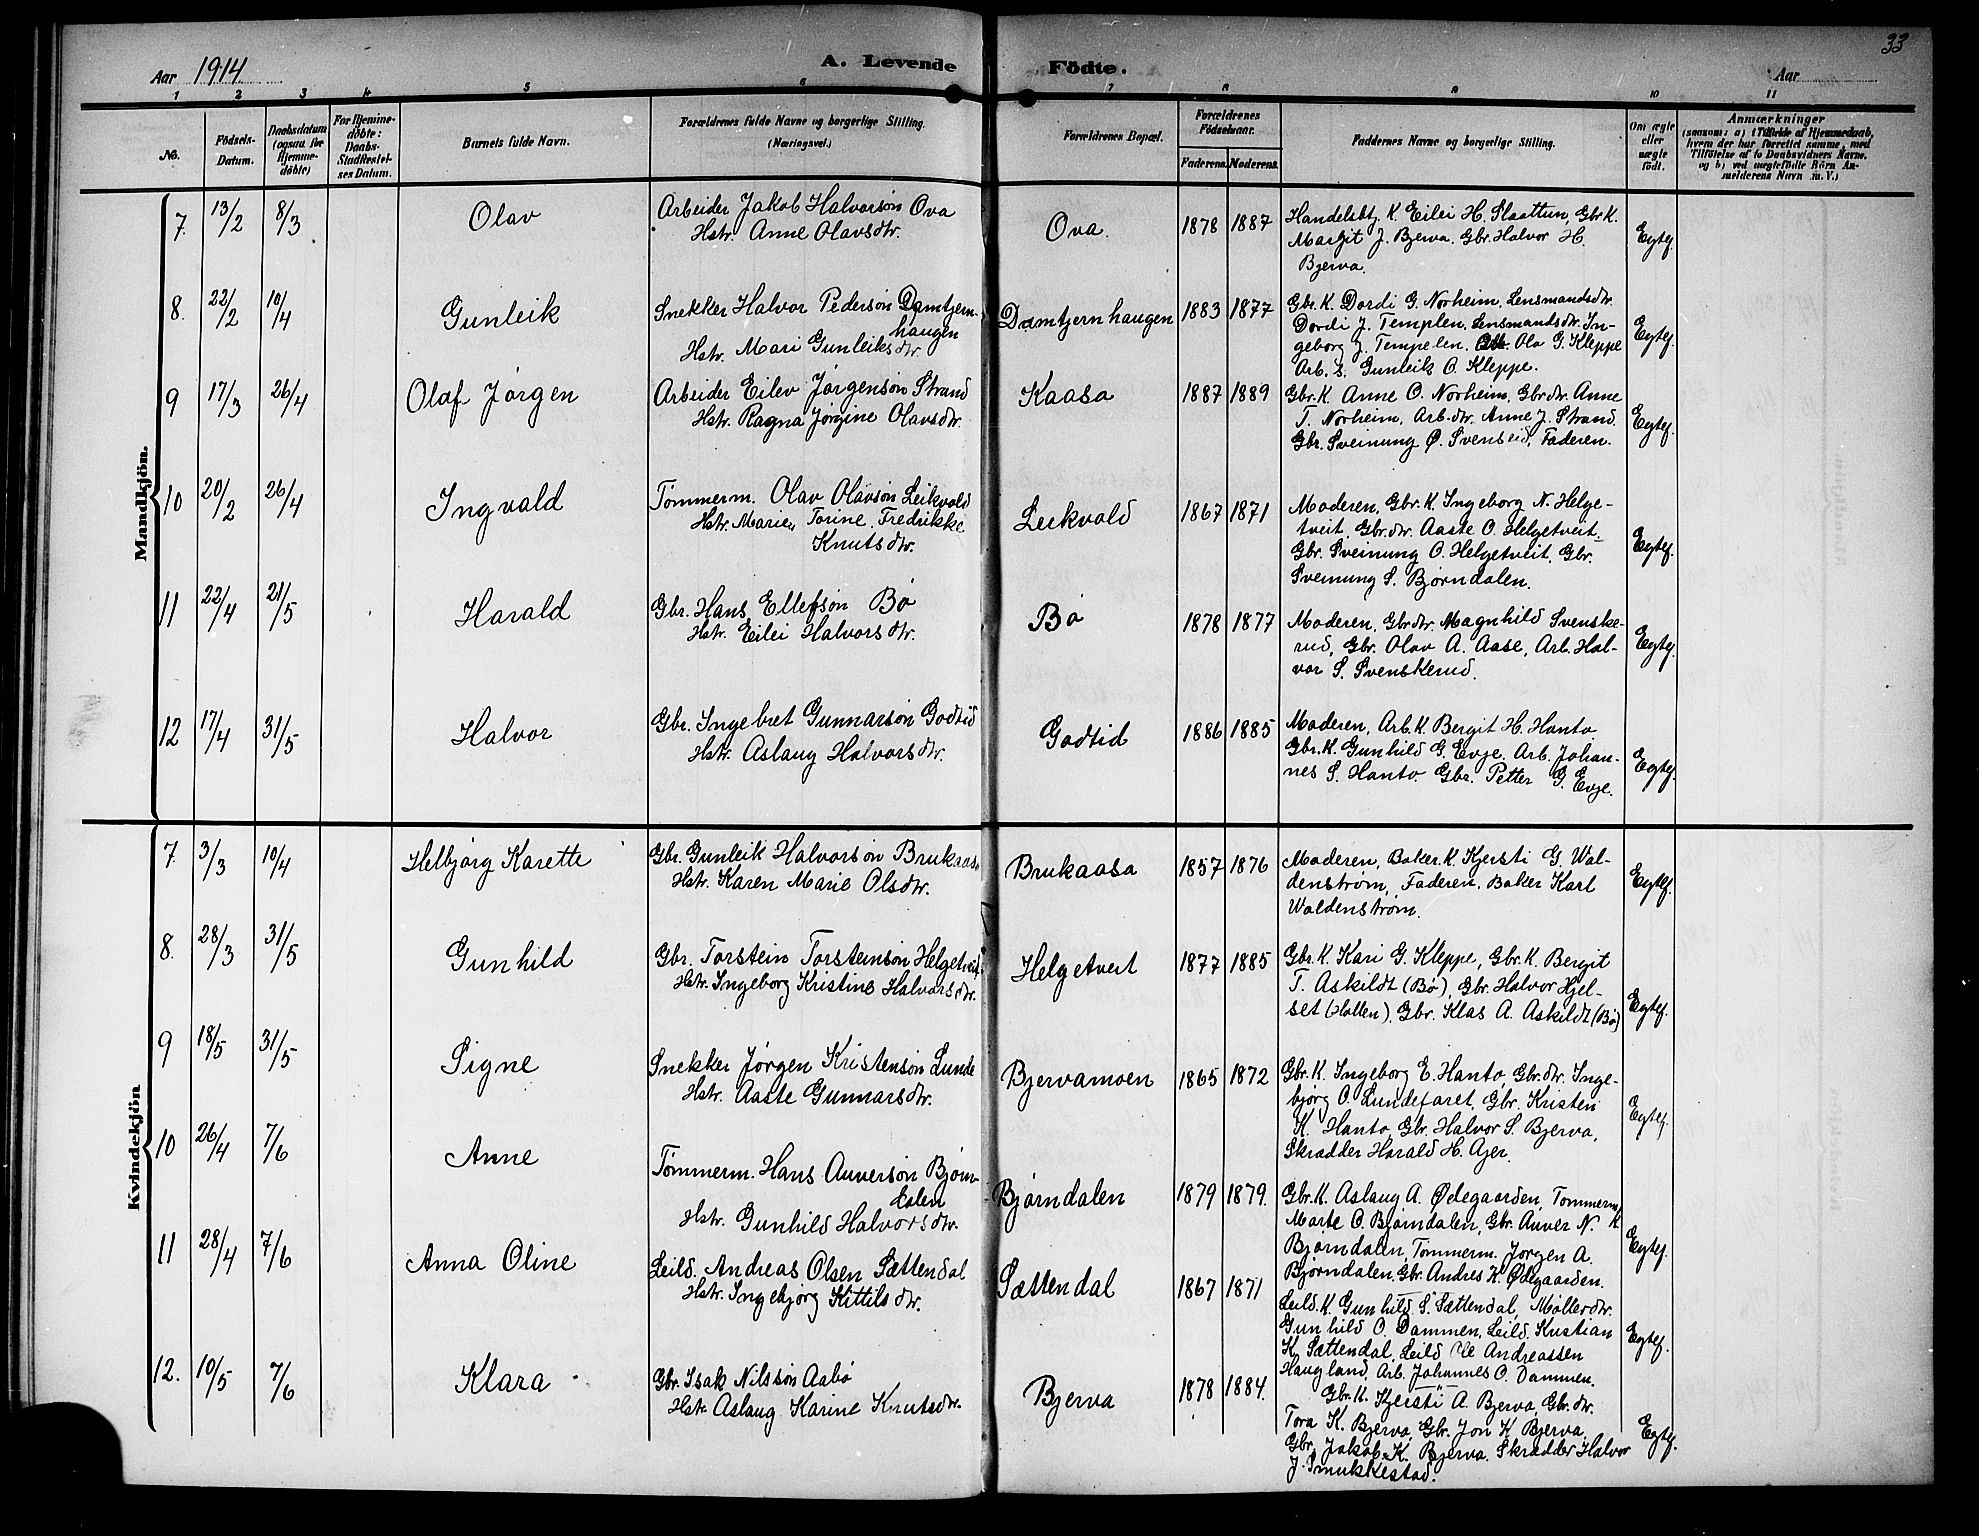 33
Aar 1914
A. Levende Födte.
Aar
1 2 3 4 5 6 7 8 9 10 11
No.
Födsels-
Datum.
Daabsdatum
(ogsaa for
Hjemme-
döbte)
For Hjemme-
döbte:
Daabs-
Stadfæstel-
ses Datum.
Barnets fulde Navn.
Forældrenes fulde Navne og borgerlige Stilling.
(Næringsvei.)
Forældrenes Bopæl.
Forældrenes
Födselsaar.
Faderens. Moderens.
Faddernes Navne og borgerlige Stilling.
Om ægte
eller
uægte
födt.
Anmærkninger
(saasom: a) i Tilfælde af Hjemmedaab,
hvem der har forrettet samme, med
Tilföielse af to Daabsvidners Navne,
og b) ved uægtefödte Börn An-
melderens Navn m. V.)
Mandkjön.
7. 13/2 8/3 Olav
Arbeider Jakob Halvorsøn Ova
Hstr. Anne Olavsdtr.
Ova. 1878 1887
Handelsbtj. K. Eilei H. Slaattun, Gbr K.
Margit J. Bjerva. Gbr. Halvor H.
Bjerva.
Egtef.
8. 22/2 10/4 Gunleik
Snekker Halvor Pedersøn Damtjern-
haugen
Hstr. Mari Gunleiksdtr.
Damtjernhaugen 1883 1877
Gbr. K. Dordi G. Norheim, Lensmandsdtr.
Dordi J. Templen, Lensmandsdtr. In-
geborg J. Tempelen, Ola G. Kleppe
Arb. s. Gunleik O. Kleppe.
Egtef.
9 17/3 26/4 Olaf Jørgen
Arbeider Eilev Jørgensøn Strand
Hstr. Ragna Jørgine Olavsdtr.
Kaasa 1887 1889
Gbr. K. Anne O. Norheim, Gbr dtr. Anne
T. Norheim, Arb. dtr. Anne J. Strand
Gbr. Sveinung Ø. Svenseid, Faderen.
Egtef.
10 20/2 26/4 Ingvald
Tømmerm. Olav Olavsøn Leikvold
Hstr. Marie, Torine, Fredrikke
Knutsdtr.
Leikvold 1867 1871
Moderen, Gbr. K. Ingeborg N. Helge-
tveit, Gbr. dtr. Aaste O. Helgetveit,
Gbr. Sveinung O. Helgetveit, Gbr.
Sveinung S. Bjørndalen.
Egtef.
11 22/4 21/5 Harald
Gbr. Hans Ellefsøn Bø
Hstr. Eilei Halvorsdtr.
Bø 1878 1877
Moderen, Gbr dtr. Magnhild Svenske-
rud, Gbr. Olav A. Aase, Arb. Hal-
vor S. Svenskerud.
Egtef.
12 17/4 31/5 Halvor
Gbr. Ingebret Gunnarsøn Godtid
Hstr. Aslaug Halvorsdtr.
Godtid 1886 1885
Moderen, Arb. K. Bergit H. Hanto
Gbr. K. Gunhild G. Evje, Arb. Johan-
nes S. Hanto, Gbr. Petter G. Evje.
Egtef.
Kvindekjön
7. 3/3 10/4 Helbjørg Karette
Gbr. Gunleik Halvorsøn Brukaasa
Hstr. Karen Marie Olsdtr.
Brukaasa 1857 1876
Moderen, Baker. K. Kjersti G. Wal-
denstrøm, Faderen, Baker Karl
Waldenstrøm.
Egtef.
8. 28/3 31/5 Gunhild
Gbr. Torstein Torsteinsøn Helgetveit
Hstr. Ingeborg Kristine Halvorsdtr.
Helgetveit 1877 1885
Gbr. K. Kari G. Kleppe, Gbr. K. Bergit
T. Askildt (Bø), Gbr. Halvor Hjel-
set (Hollen), Gbr. Klas A. Askildt (Bø)
Egtef.
9 18/5 31/5 Signe
Snekker Jørgen Kristensøn Lunde
Hstr. Aaste Gunnarsdtr.
Bjervamoen 1865 1872
Gbr. K. Ingeborg E. Hanto, Gbr. dtr. Inge-
bjørg O. Lundefaret, Gbr. Kristen
K. Hanto, Gbr. Halvor S. Bjerva,
Skradder Harald H. Ajer.
Egtef.
10 26/4 7/6 Anne
Tømmerm. Hans Anversøn Bjørn-
dalen
Hstr. Gunhild Halvorsdtr.
Bjørndalen 1879 1879.
Gbr. K. Aslaug A. Ødegaarden, Tømmerm. K
Marte O. Bjørndalen, Gbr. Anver N.
Bjørndalen, Tømmerm. Jørgen A.
Bjørndalen, Gbr. Andres K. Ødegaarden.
Egtef.
11 28/4 7/6 Anna Oline
Leild. Andreas Olsen Sættendal
Hstr. Ingebjørg Kittilsdtr.
Sættendal 1867 1871
Leild. K. Gunhild S. Sættendal, Møllerdtr.
Gunhild O. Dammen, Leild. Kristian
K. Sættendal, Leild Ole Andreassen
Haugland, Arb. Johannes O. Dammen.
Egtef.
12. 10/5 7/6 Klara
Gbr. Isak Nilssøn Aabø
Hstr. Aslaug Karine Knutsdtr.
Bjerva 1878 1884.
Gbr. K. Kjersti A. Bjerva, Gbr. dtr.
Tora K. Bjerva, Gbr. Jon K. Bjerva,
Gbr. Jakob K. Bjerva, Skradder Halvor
J. Smukkestad.
Egtef.